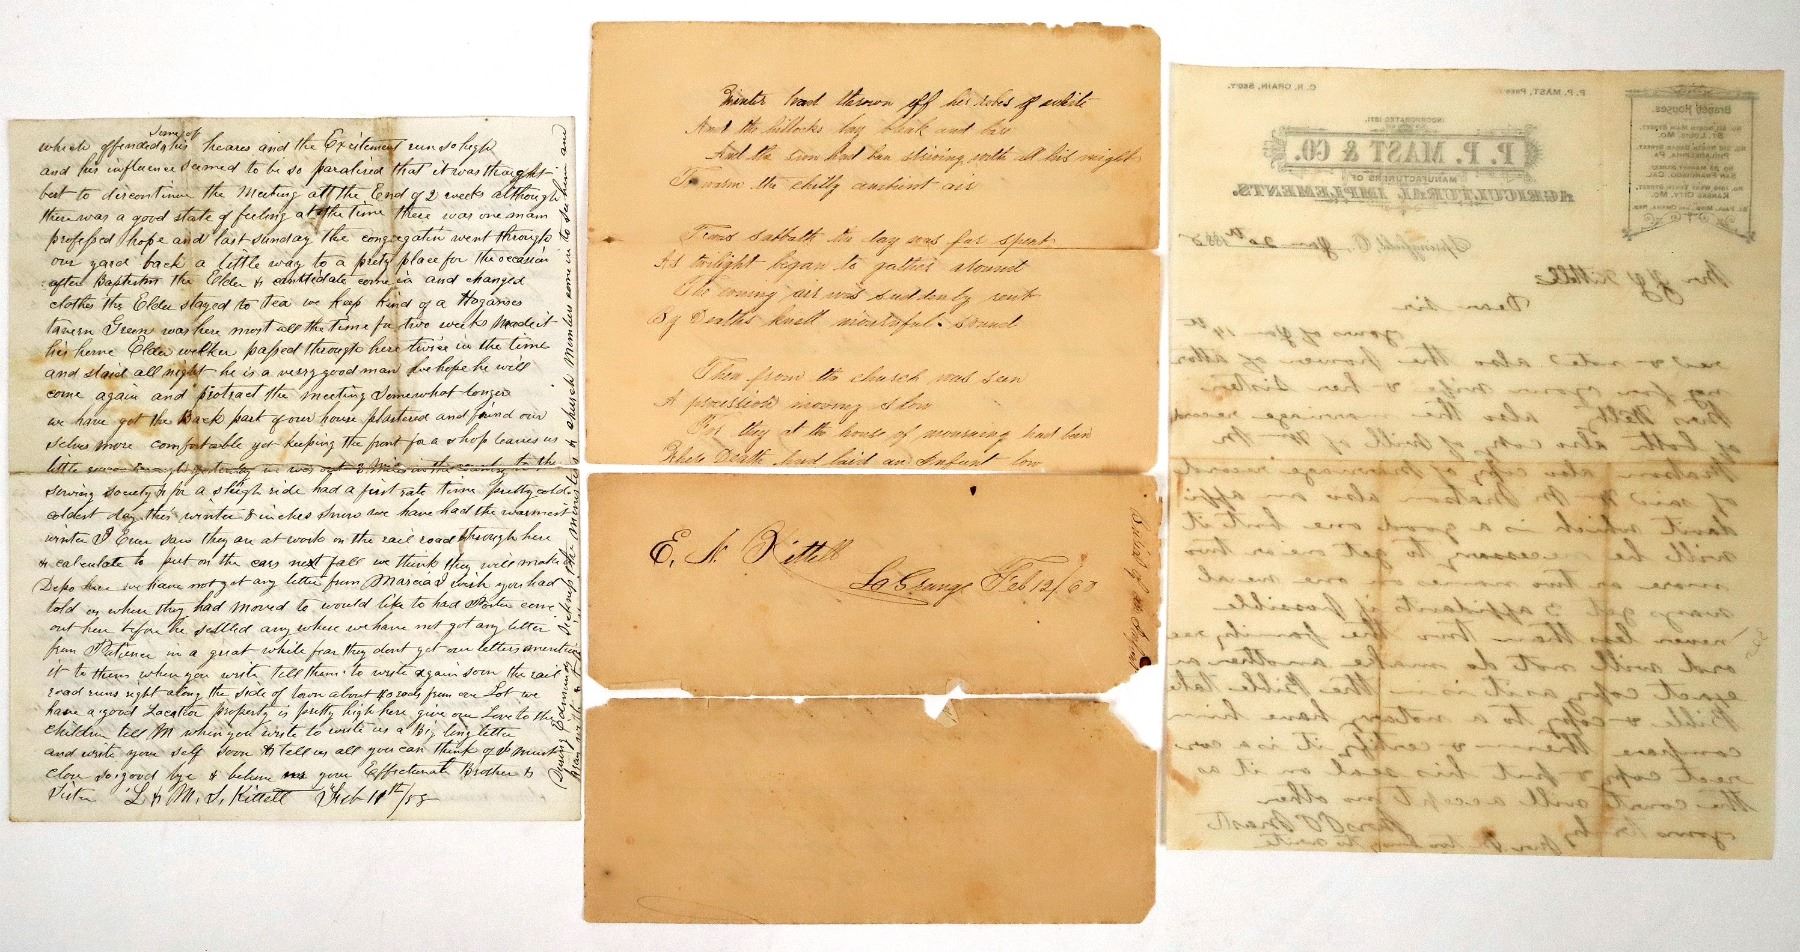 some of
which offended his hearers and the Excitement run so high
and his influence seemed to be so paralised that it was thought
best to discontinue the Meeting att the End of 2 weeks although
there was a good state of feeling at the time there was one man
professed hope and last sunday the congregatin went through
our yard back a little way to a prety place for the occasion
after Baptism the Elder & candidate come in and changed
clothes the Elder stayed to Tea we keep kind of a
tavern Green was here most all the time for two weeks Made it
his home Elder welker passed through here twice in the time
and staid all night he is a verry good man we hope he will
come again and protract the meeting Somewhat longer
we have got the Back part of our house plastered and find our
selves more comfortable yet keeping the front for a shop leaves us
little room yesterday we was out 8 Miles in the country to the
sewing society & for a sleigh ride had a first rate time pretty cold
coldest day this winter 8 inches snow we have had the warmest
winter I Ever saw they are at work on the rail road through here
& calculate to put on the cars next fall we think they will make a
Depo here we have not got any letter from Marcia I wish you had
told us where they had moved to would like to had Porter come
out here before he settled any where we have not got any letter
from Patience in a great while fear they dont get our letters mention
it to them when you write tell them to write again soon the rail
road runs right along the side of town about 40 rods from our Lot we
have a good Location property is pretty high here give our Love to the
children tell M when you write to write us a Big long letter
and write your self soon & tell us all you can think of & must
close so good bye & believe us your Effectionate Brother &
Sister L & M. J. Kittell Feb 11th/58
During Edmunds Sickness the minister & church Members come in to see him and
Winter had thrown off her robes of white
And the hillocks lay bleak and bare
And the sun had ben striving with all his might
To warm the chilly ambient air
Twas sabbath the day was far spent
As twilight began to gather around
The evening air was suddenly rent
By Deaths knell mournful sound
Then from the church was seen
A procession moving slow
For they at the house of mourning had ben
Where Death had laid an Infant low
E. N. Kittell
La Grange Feb 12/60
Burial of an Infant
P. P. MAST, Pres.
C. R. CRAIN, SECY.
INCORPORATED 1871.
P. P. MAST & CO.
MANUFACTURERS OF
AGRICULTURAL IMPLEMENTS.
Branch Houses
ST. LOUIS, MO.
PHILADELPHIA, PA.
SAN FRANCISCO, CAL.
KANSAS CITY, MO.
Springfield, O. 20th 1885
Kittell
Dear Sir
yours of 19th
recd & noted also the power of attor
ney from your wife & her sister
also the marriage record
of both also copy of will of Wm M
also copy of marriage record
of said Wm M also an affi
davit which is a good one but it
will be necessary to get one or two
more or two more or one
ways get 3 affidavits if possible
never less than two the family rec
ord will not do make another an
exact copy as it is in the Bible take
Bible & copy to a notary have him
compare them & certify it is a cor
rect copy & put his seal on it as
the court will accept no other
yours by